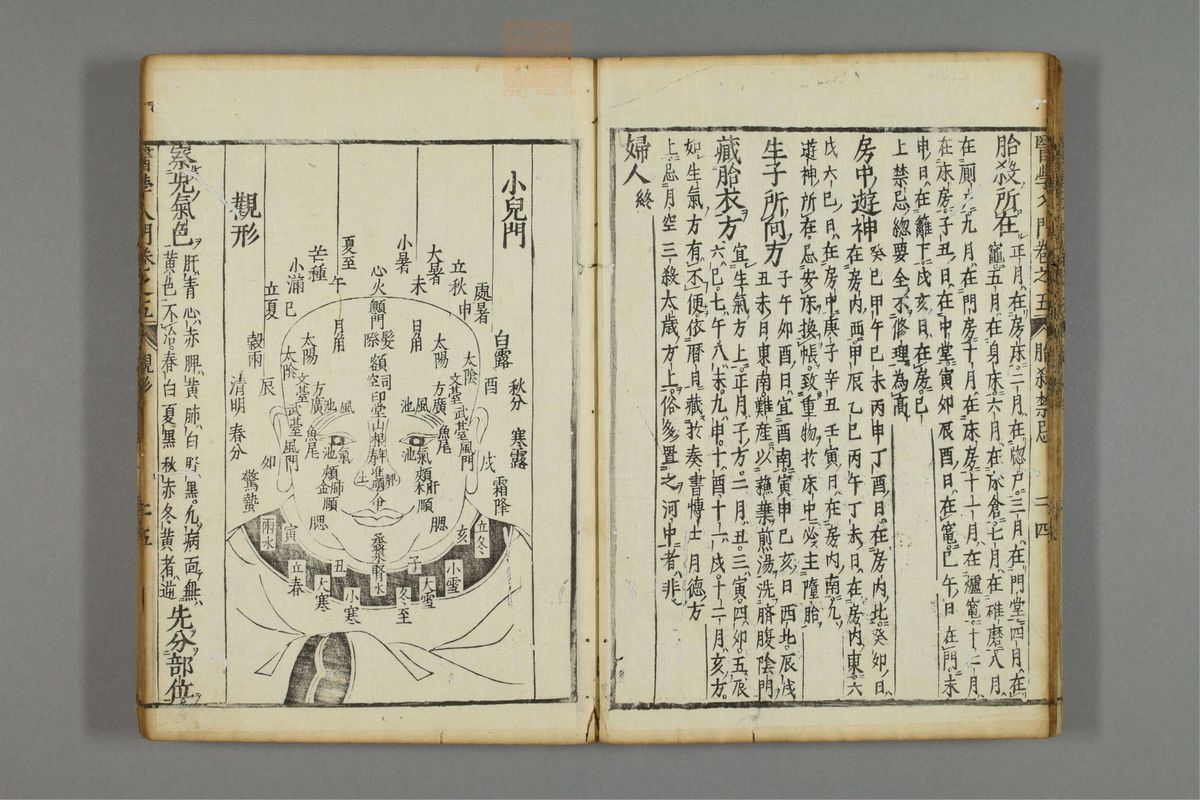 醫學入門卷之五 胎殺禁忌 二四
胎殺所在 正月在房床二月在窓戶三月在門堂四月在
竈五月在身床六月在床倉七月在碓磨八月
在厠九月在門房十月在床房十一月在爐竈十二月
在床房子丑日在中堂寅卯辰酉日在竈巳午日在門未
申日在籬下戌亥日在房巳
上禁忌緫要全不修理為高
房中遊神 癸巳甲午乙未丙申丁酉日在房内北癸卯日
在房内西甲辰乙巳丙午丁未日在房内東六
戊六巳日在房中庚子辛丑壬寅日在房内南九
遊神所在忌安床換帳致重物於床中必主墮胎
生子所向方 子午卯酉日宜酉南寅申巳亥日西北辰戌
丑未日東南難産以煎湯洗臍腹陰門
藏胎衣方 宜生氣方上正月子方二月丑三寅四卯五辰
六巳七午八未九申十酉十一戌十二月亥方
如生氣方有不便依曆月藏於奏書博士月德方
上忌月空三殺太歲方上俗多置之河中者非
婦人終
小兒門
秋分
寒露
霜降
白露
酉
戌
處暑
申
立秋
立冬
亥
大暑
未
小雪
小暑
大雪
子
冬至
太陰
太陽
日角
文臺
武臺
風門
方廣
魚尾
風池
氣池
肝頰木
頤
腮
髮際
心火
顖門
額
司空
印堂
山根
年壽
準
脾土
承漿
腎水
夏至
午
月角
太陽
太陰
文臺
武臺
風門
方廣
魚尾
風池
氣池
肺頰金
頤
腮
芒種
小滿
巳
立夏
穀雨
辰
清明
春分
卯
驚蟄
雨水
寅
立春
丑
大寒
小寒
觀形
察兒氣色 肝青心赤脾黃肺白腎黑凡病面無
黃色不治春白夏黑秋赤冬黃者逆 先分部位
醫學入門卷之五 觀形 二五